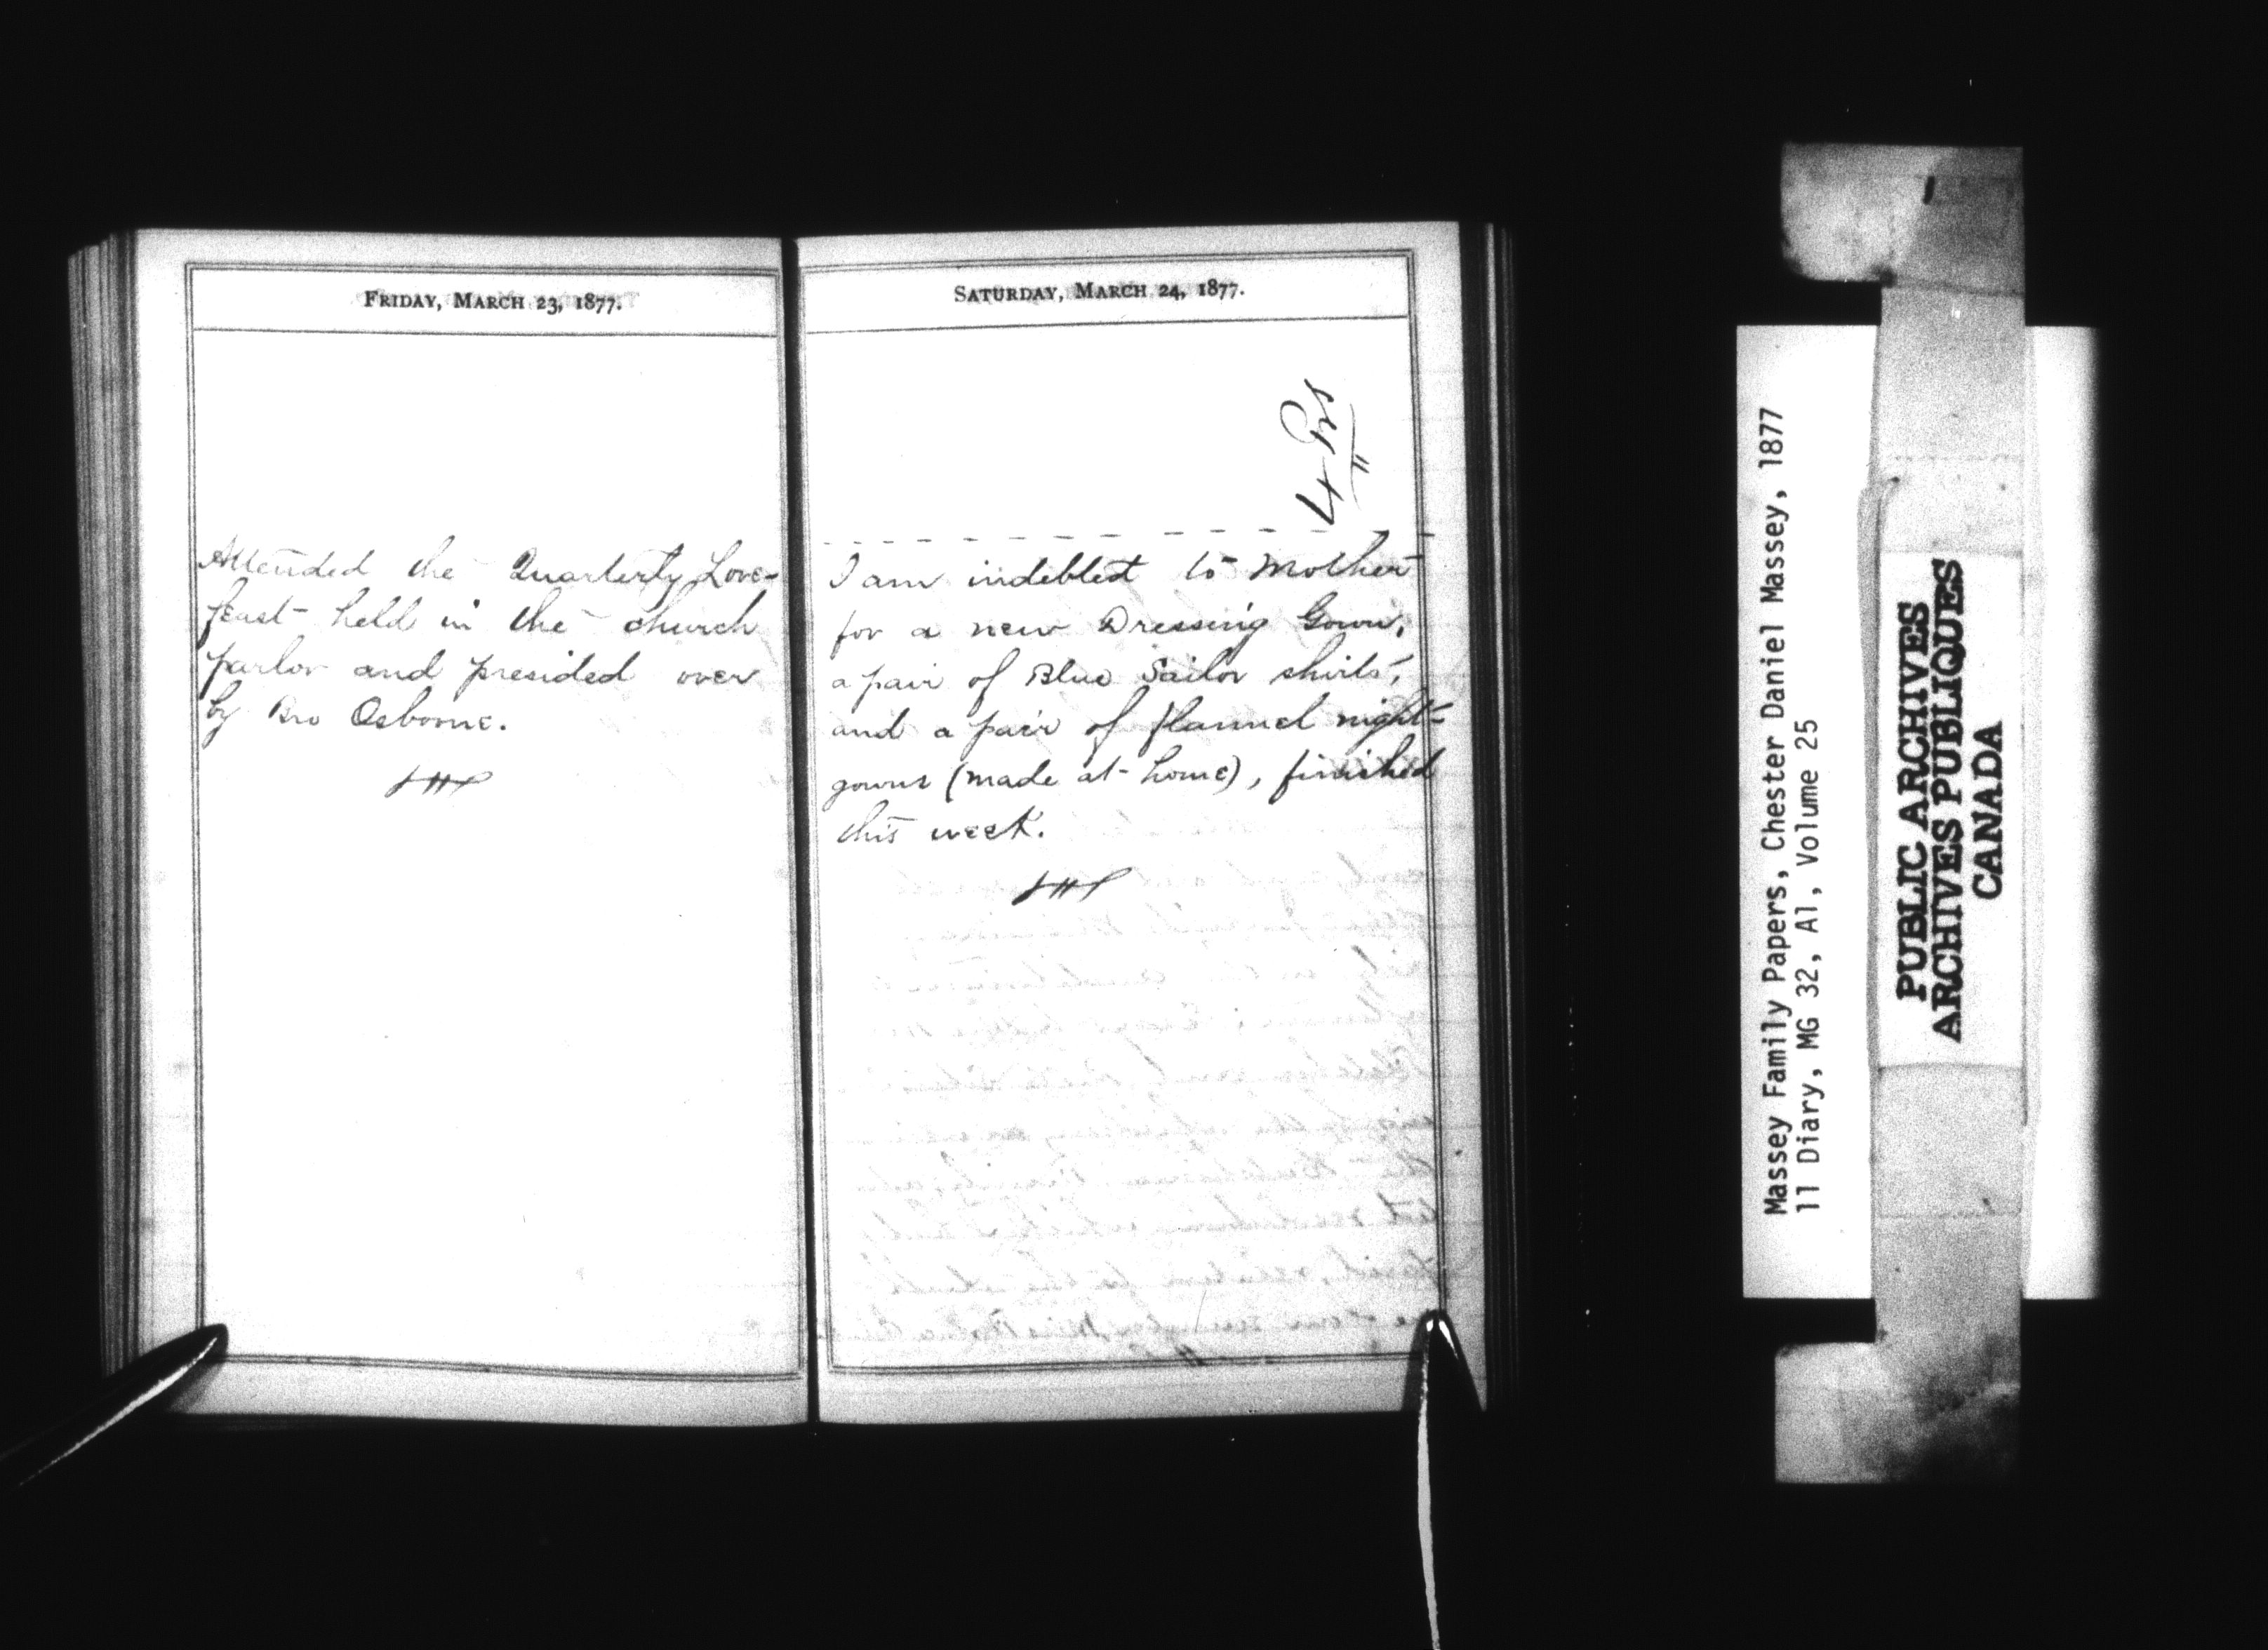 FRIDAY, MARCH 23, 1877.
Attended the Quarterly Love-
feast held in the church
parlor and presided over
by Bro Osborne.
SATURDAY, MARCH 24, 1877.
I am indebted to Mother
for a new Dressing Gown,
a pair of Blue Sailor shirts,
and a pair of flannel night-
gowns (made at home), finished
this week.
Massey Family Papers, Chester Daniel Massey, 1877
11 Diary, MG 32, A1, Volume 25
PUBLIC ARCHIVES
ARCHIVES PUBLIQUES
CANADA